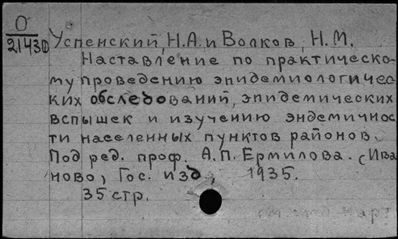 О
21430
Успенский, Н.А. и Волков, Н.М.
Наставление по практическо-
му проведению эпидемиологичес
ких обследований, эпидемических
вспышек и изучению эндемичнос
ти населенных пунктов районов.
Под ред. проф. А.П. Ермилова. (Ива
ново, Гос. изд, 1935.
35 стр.